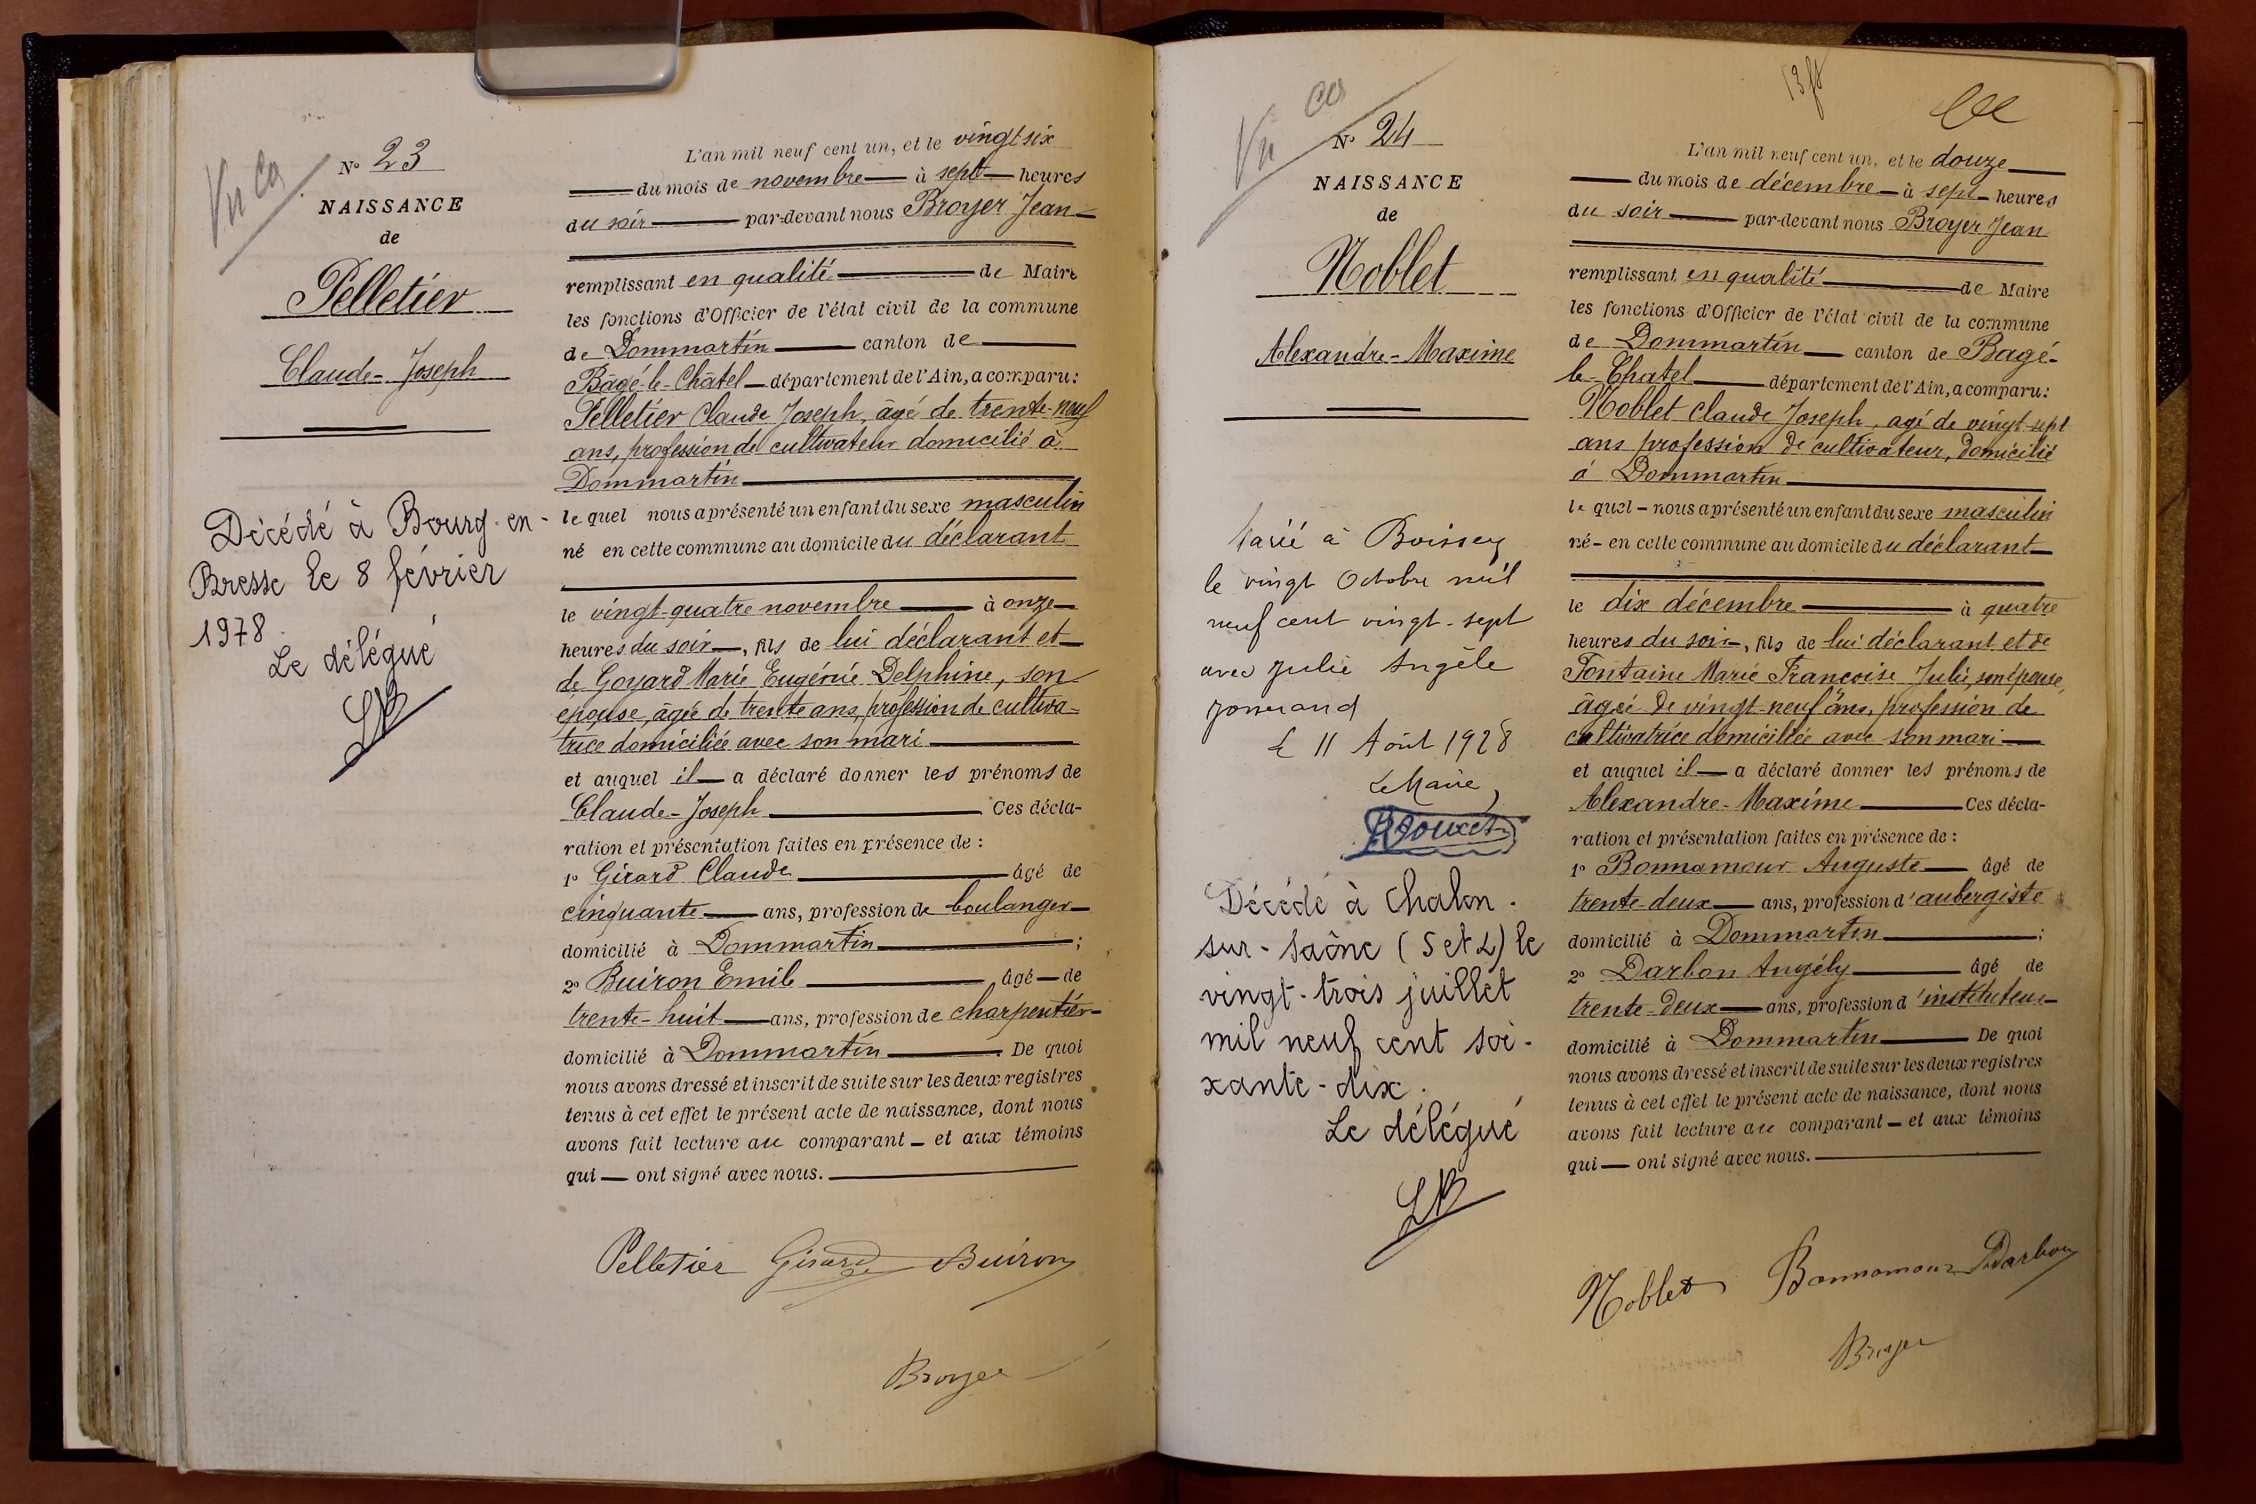 Vu ca
N° 23
NAISSANCE
de
Pelletier
Claude-Joseph
Décédé à Bourg-en-
Bresse le 8 février
1978
Le délégué
L'an mil neuf cent un, et le vingt six
du mois de novembre à sept heures
du soir par-devant nous Broyer Jean
remplissant en qualité de Maire
les fonctions d'Officier de l'état civil de la commune
de Dommartin canton de
Bâgé-le-Châtel département de l'Ain, a comparu:
Pelletier Claude Joseph, âgé de trente-neuf
ans, profession de cultivateur domicilié à
Dommartin
le quel nous a présenté un enfant du sexe masculin
né en cette commune au domicile du déclarant
le vingt-quatre novembre à onze
heures du soir, fils de lui déclarant et
de Goyard Marie Eugénie Delphine, son
épouse, âgée de trente ans, profession de cultiva-
trice domiciliée avec son mari
et auquel il a déclaré donner les prénoms de
Claude-Joseph Ces décla-
ration et présentation faites en présence de :
1° Girard Claude âgé de
cinquante ans, profession de boulanger
domicilié à Dommartin ;
2° Buiron Emile âgé de
trente-huit ans, profession de charpentier
domicilié à Dommartin. De quoi
nous avons dressé et inscrit de suite sur les deux registres
tenus à cet effet le présent acte de naissance, dont nous
avons fait lecture au comparant et aux témoins
qui ont signé avec nous.
Pelletier Girard Buiron
Broyer
Vu ca
N° 24
NAISSANCE
de
Noblet
Alexandre-Maxime
Marié à Boissey
le vingt Octobre mil
neuf cent vingt-sept
avec Julie Angèle
Le 11 Août 1928
Le Maire,
Décédé à Chalon-
sur-Saône (S et L) le
vingt-trois juillet
mil neuf cent soi-
xante-dix.
Le délégué
L'an mil neuf cent un, et le douze
du mois de décembre à sept heures
du soir par-devant nous Broyer Jean
remplissant en qualité de Maire
les fonctions d'Officier de l'état civil de la commune
de Dommartin canton de Bagé-
le-Chatel département de l'Ain, a comparu:
Noblet Claude Joseph, agé de vingt-sept
ans profession de cultivateur, domicilié
à Dommartin
le quel nous a présenté un enfant du sexe masculin
né en cette commune au domicile du déclarant
le dix décembre à quatre
heures du soir, fils de lui déclarant et de
Fontaine Marie Françoise Julie, son épouse,
âgée de vingt-neuf ans, profession de
cultivatrice domiciliée avec son mari
et auquel il a déclaré donner les prénoms de
Alexandre-Maxime Ces décla-
ration et présentation faites en présence de :
1° Bonnamour Auguste âgé de
trente-deux ans, profession d'aubergiste
domicilié à Dommartin ;
2° Darbon Angély âgé de
trente-deux ans, profession d'instituteur
domicilié à Dommartin De quoi
nous avons dressé et inscrit de suite sur les deux registres
tenus à cet effet le présent acte de naissance, dont nous
avons fait lecture au comparant et aux témoins
qui ont signé avec nous.
Noblet Bonnamour Darbon
Broyer